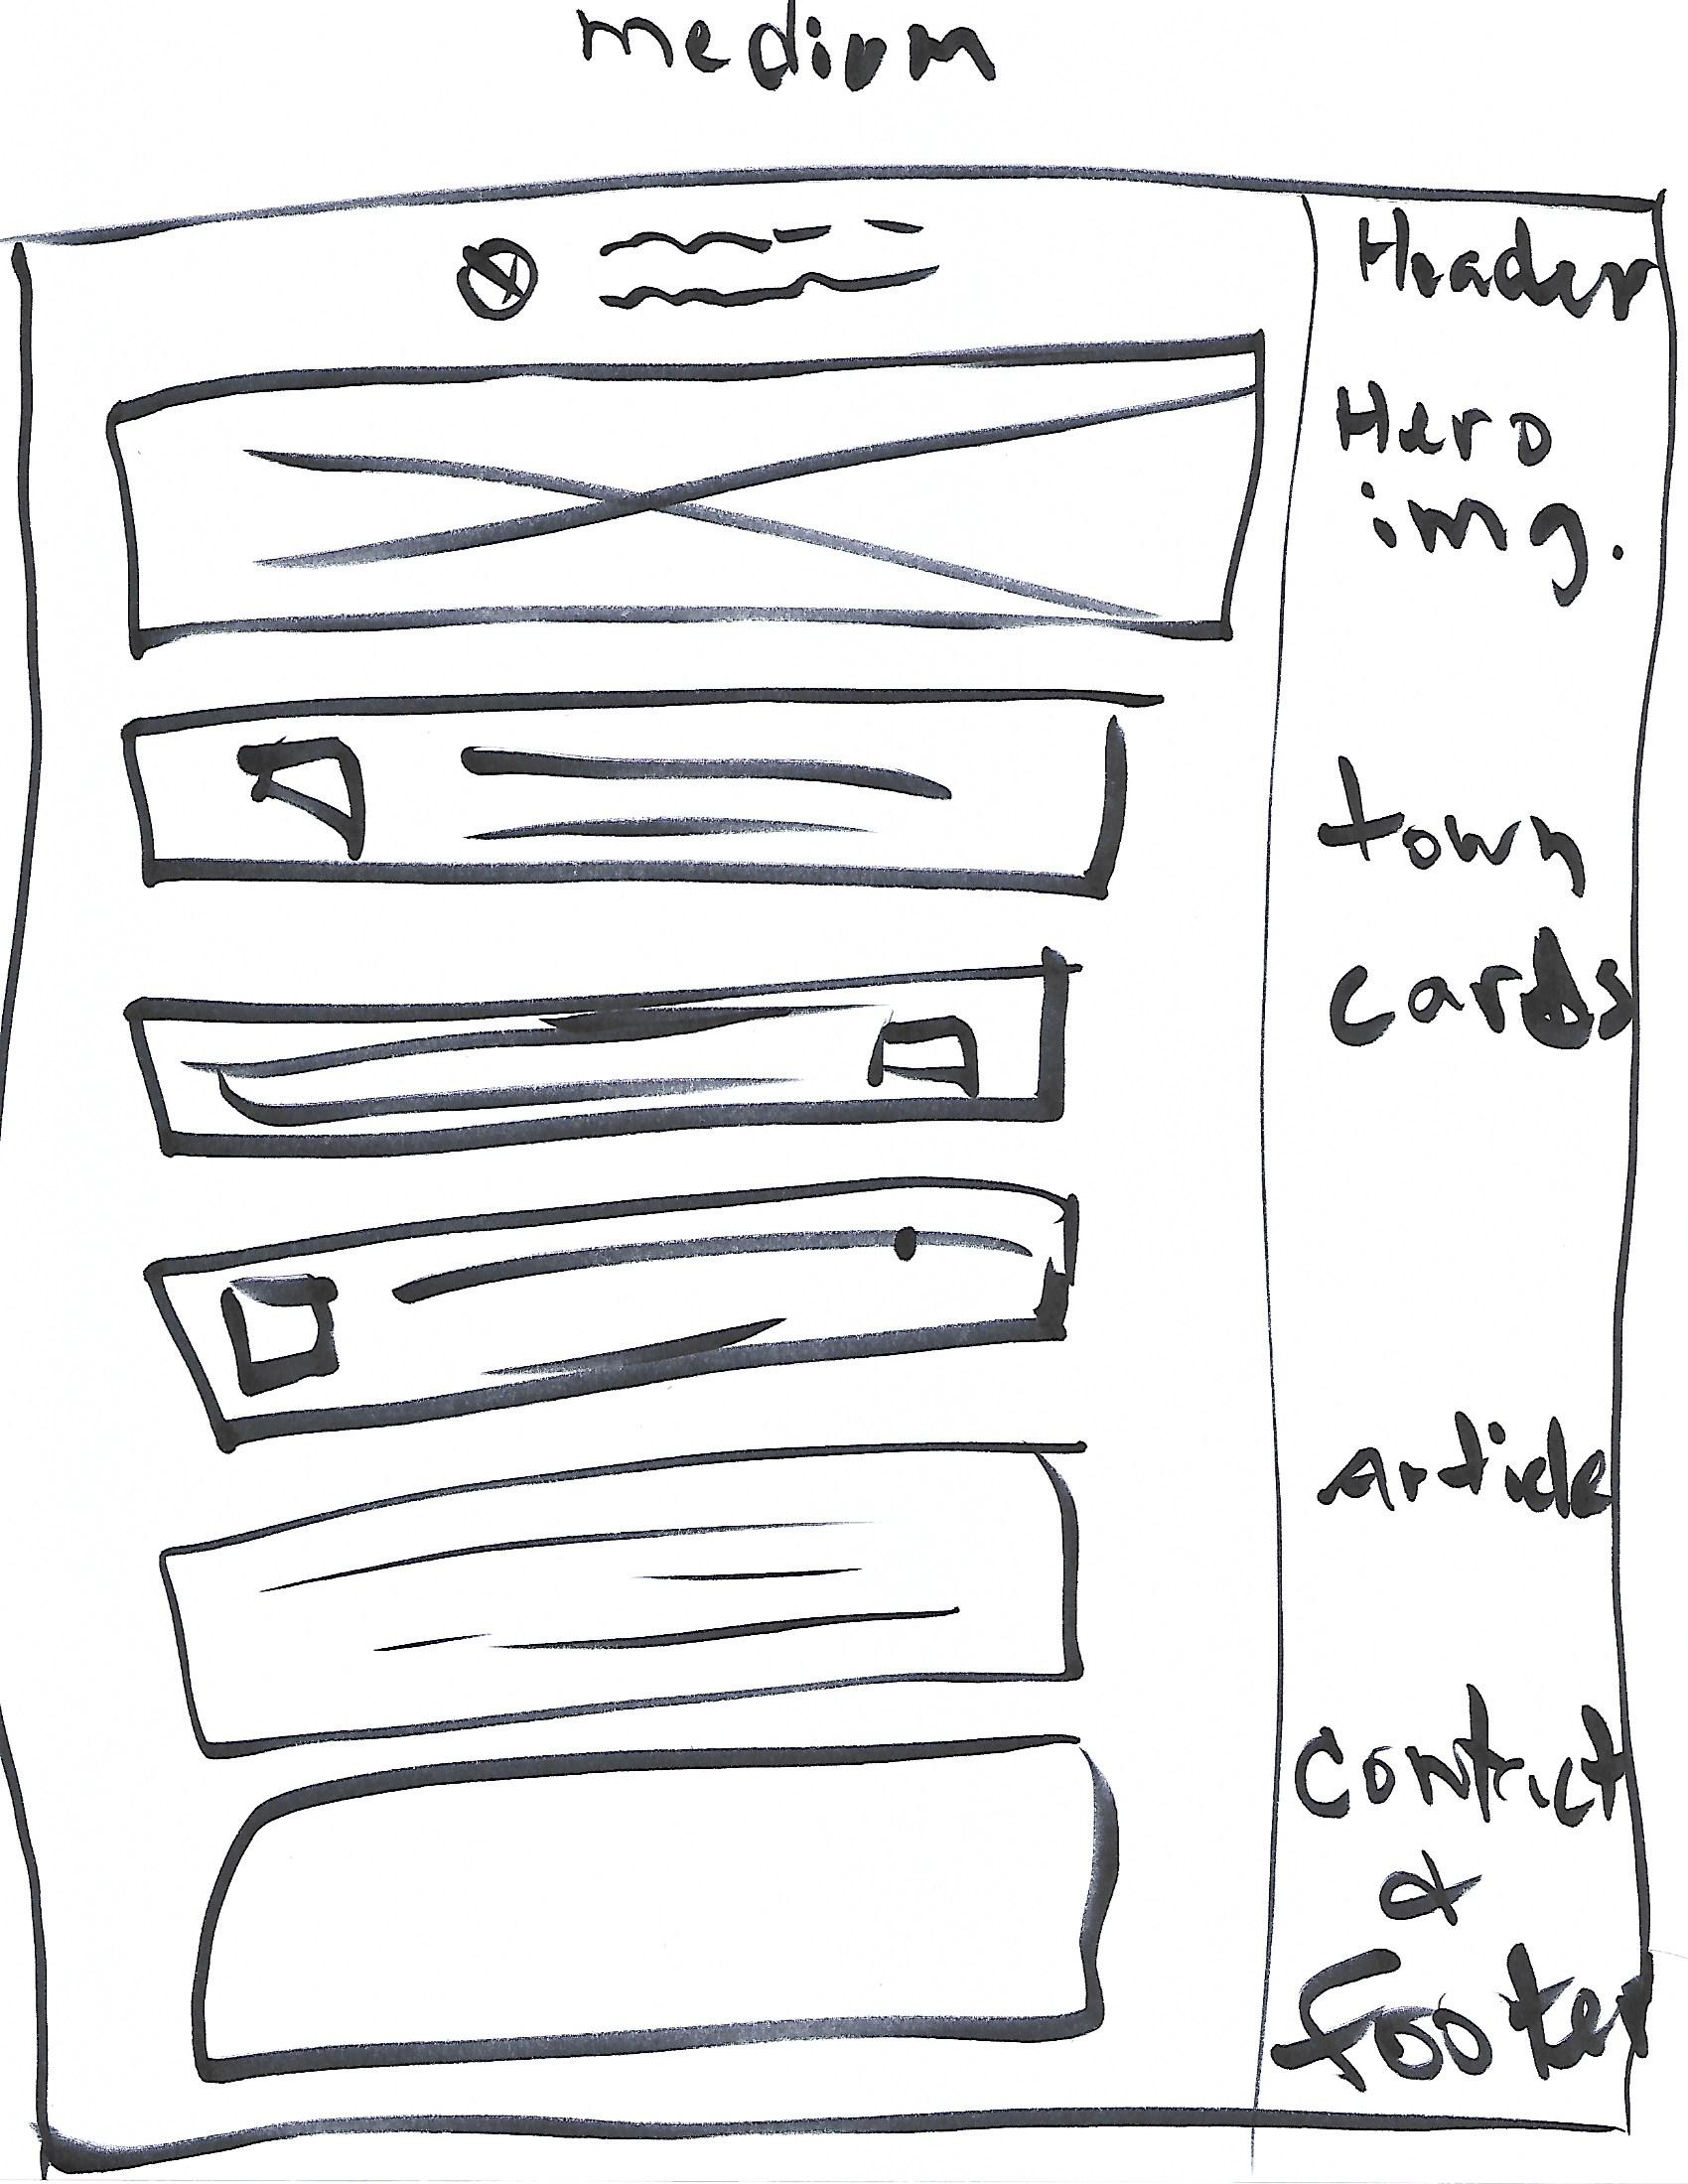 medium
Header
Hero
img.
town
cards
Article
Contact
&
Footer